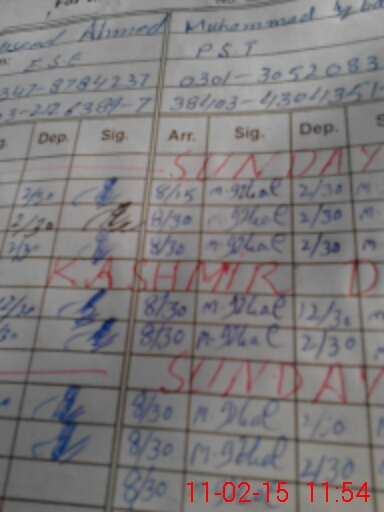 Ahmed Muhammad
E.S.E P.S.T
347-8784237 0301-3052083
Dep. Sig. Arr. Sig. Dep.
SUNDAY
2/30 8/15 m-Iqbal 2/30 m
2/30 8/30 m-Iqbal 2/30 m
2/30 8/30 m-Iqbal 2/30 m
KASHMIR D
12/30 8/30 m-Iqbal 12/30 m
8/30 m-Iqbal 2/30 m
SUNDAY
8/30 m-Iqbal 2/30
8/30 m-Iqbal 2/30
8/30
11-02-15 11:54